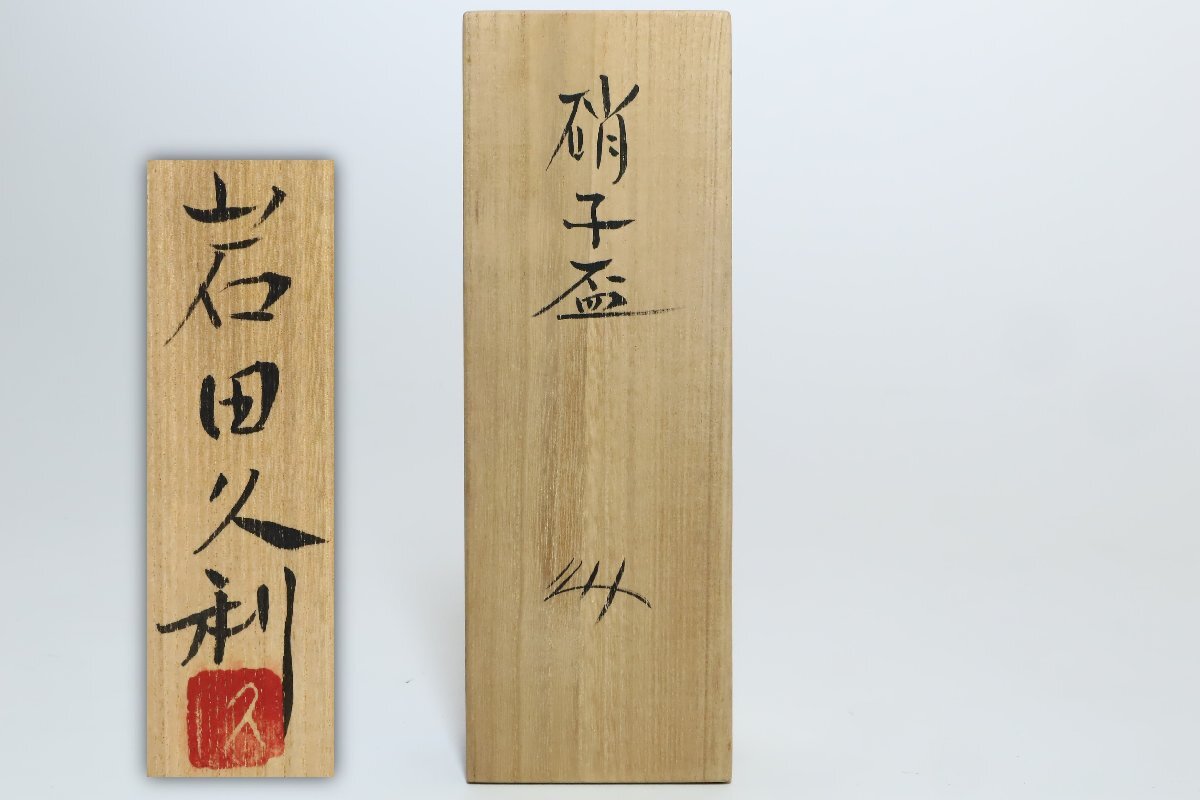 硝子盃
岩田久利
久